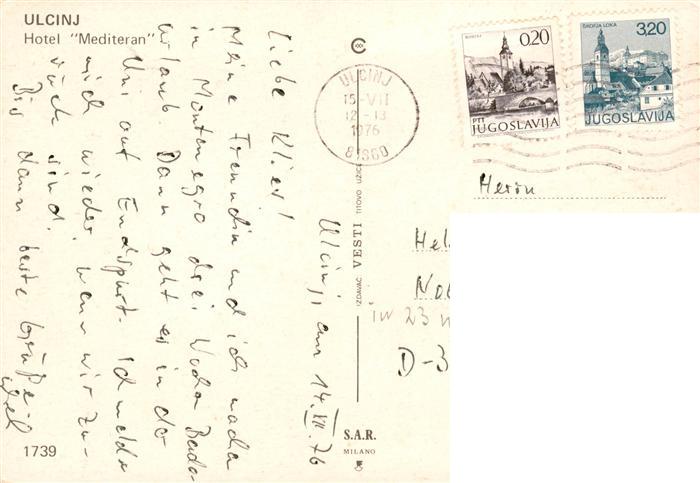 ULCINJ
Hotel "Mediteran"
Ulcinj, am 14.VII.76
Liebe Klier!
Meine Freundin und ich machen
in Montenegro drei Wochen Bade-
urlaub. Dann geht es in der
Uni auf Endspurt. Ich melde
mich wieder, wenn wir zu-
rück sind.
Bis dann beste Grüße
1739
C
IZDAVAC VESTI TITOVO UZICE
S.A.R.
MILANO
ULCINJ
15-VII
12-13
1976
81360
0,20
PTT
JUGOSLAVIJA
ŠKOFJA LOKA
3,20
JUGOSLAVIJA
Herrn
Hel
No
in 23
D-3